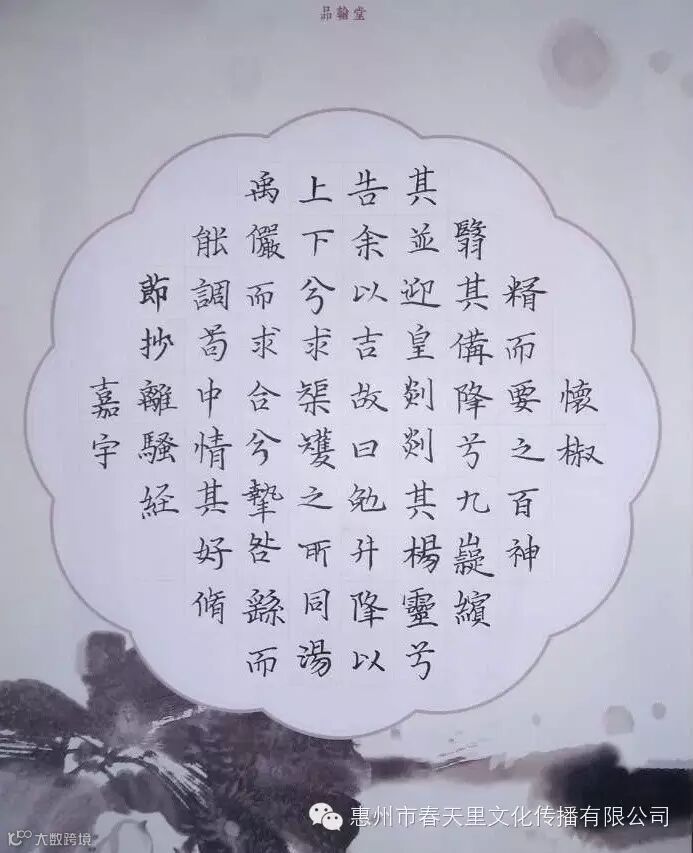 品翰堂
懷椒
糈而要之百神
翳其備降兮九嶷繽
其並迎皇剡剡其楊靈兮
告余以吉故曰勉升降以
上下兮求榘矱之所同湯
禹儼而求合兮摯咎繇而
能調苟中情其好脩
節抄離騷経
嘉宇
惠州市春天里文化传播有限公司
大数跨境